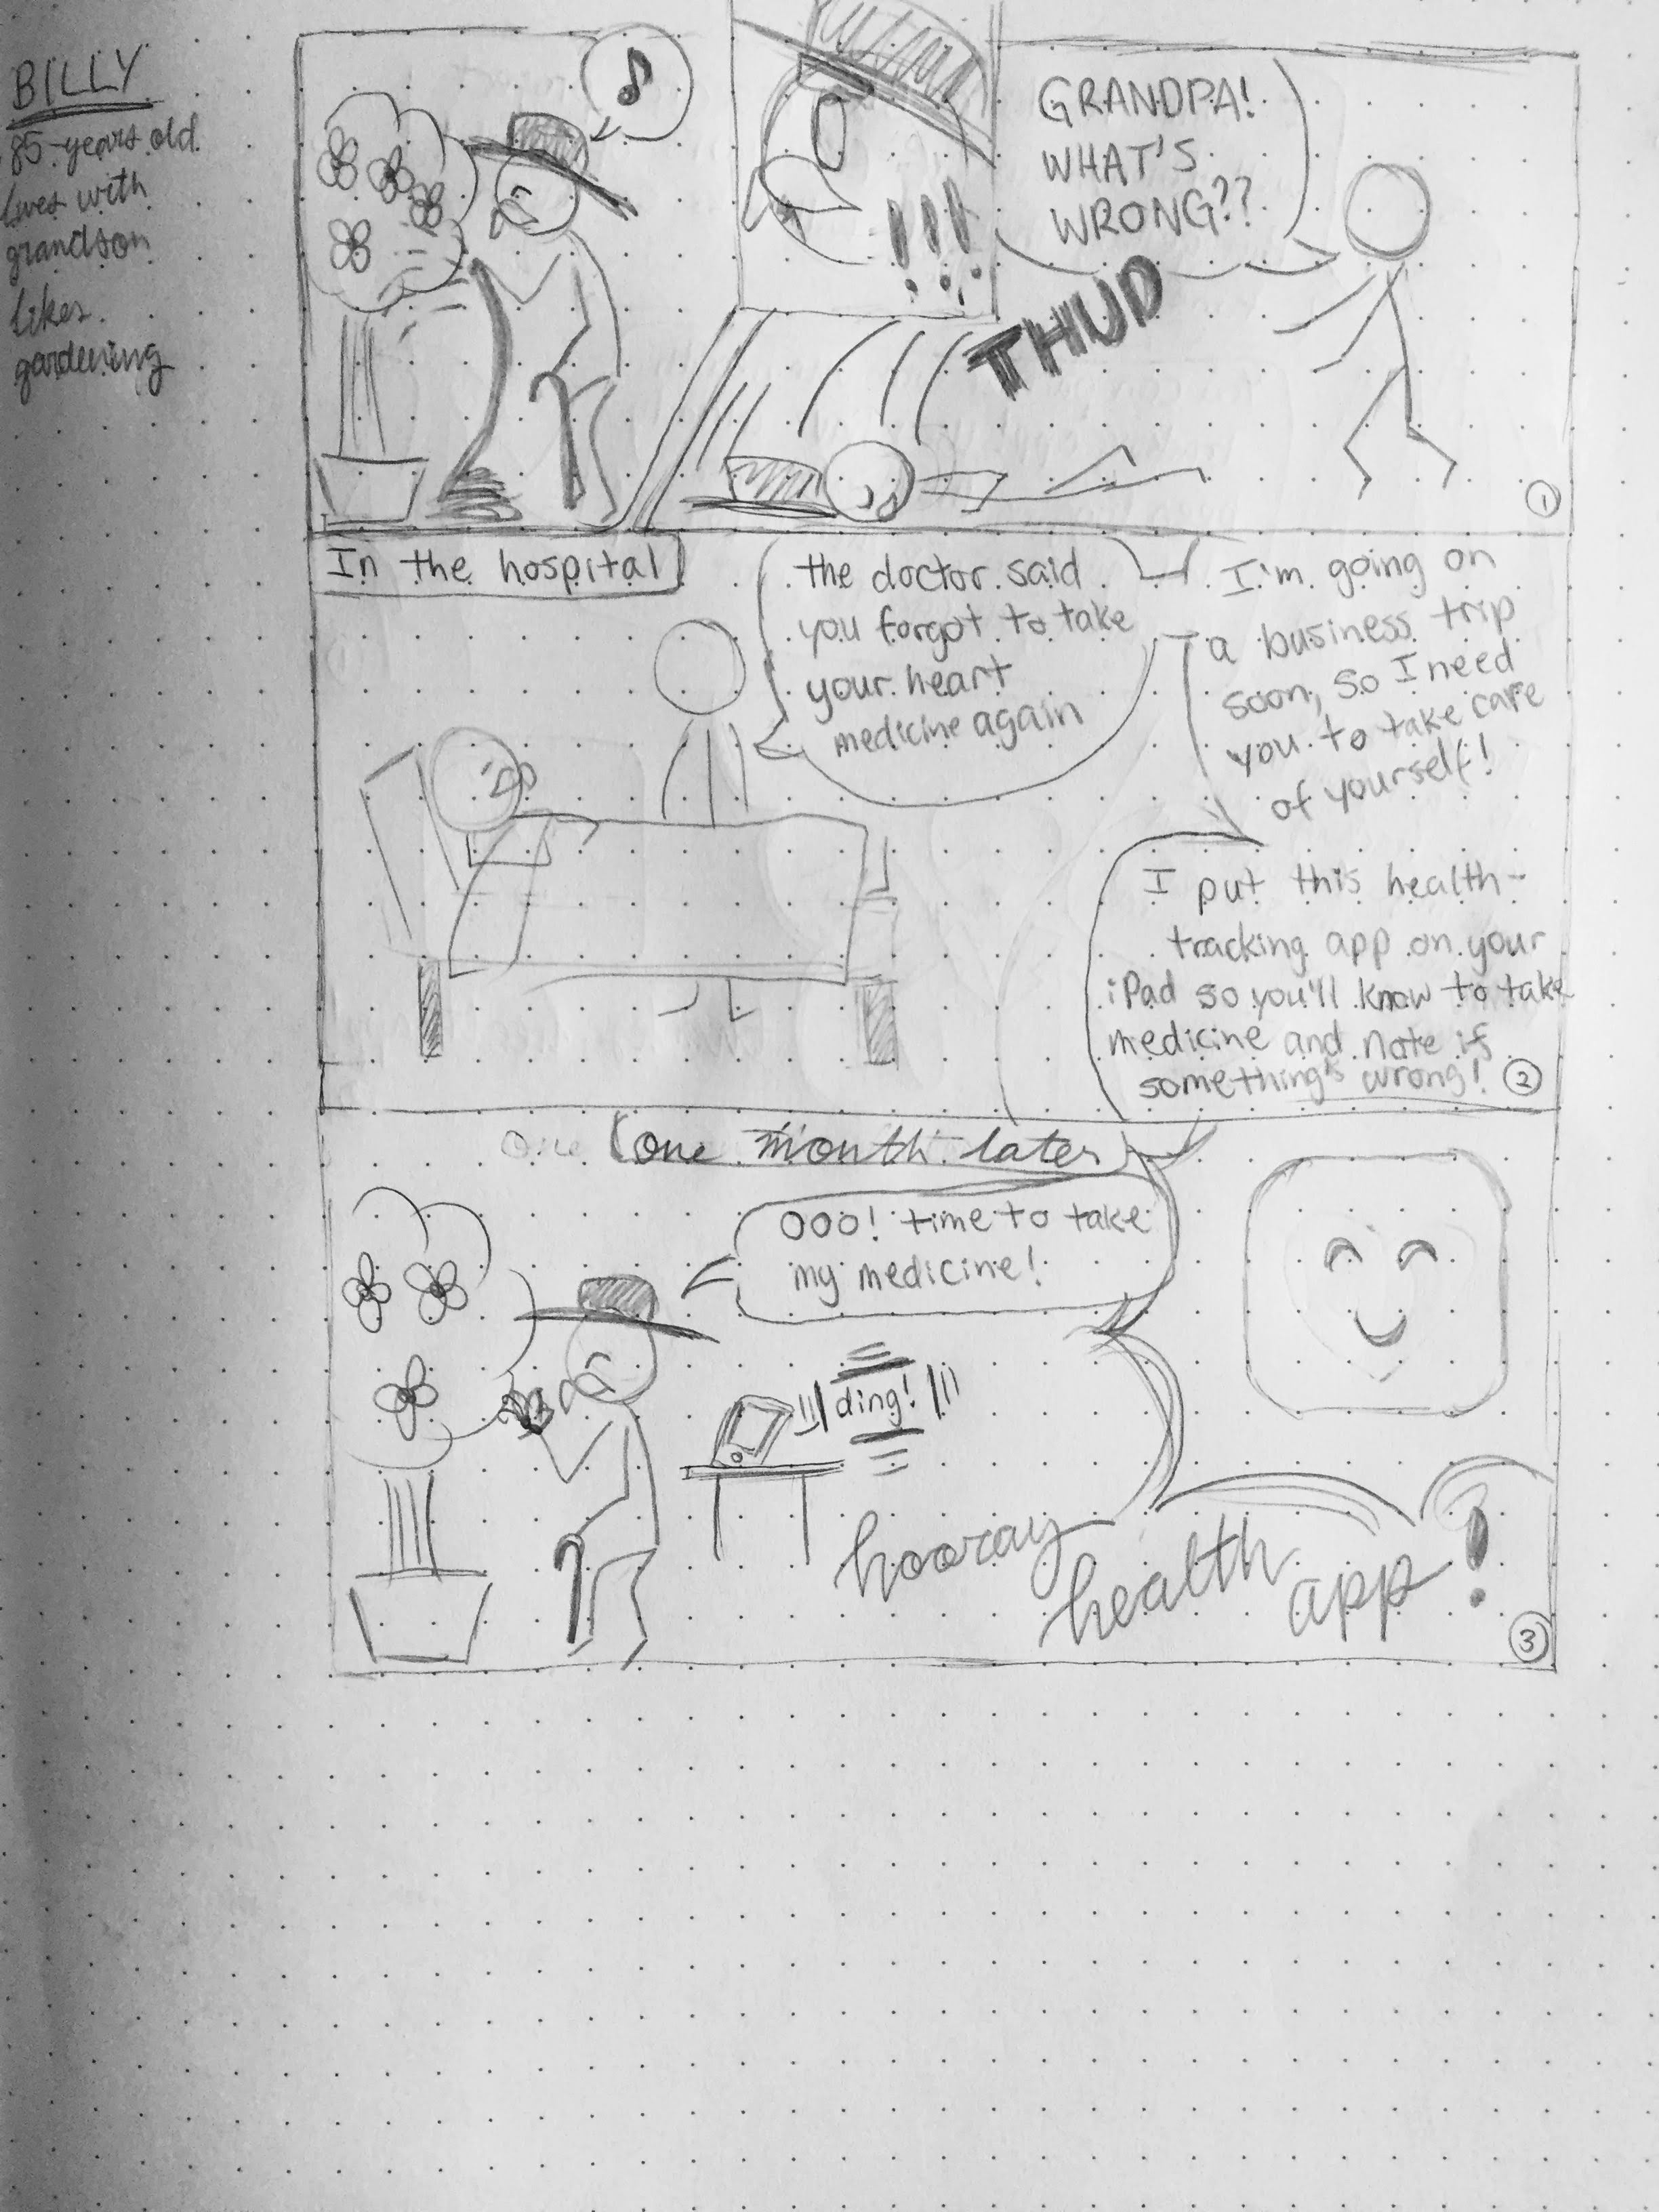 BILLY
85-years old
lives with
grandson
likes
gardening
GRANDPA!
WHAT'S
WRONG??
!!!
THUD
1
In the hospital
the doctor said
you forgot to take
your heart
medicine again
I'm going on
a business trip
soon, so I need
you to take care
of yourself!
I put this health-
tracking app on your
iPad so you'll know to take
medicine and note if
something's wrong!
2
one one month later
OOO! time to take
my medicine!
ding!
hooray
health
app!
3